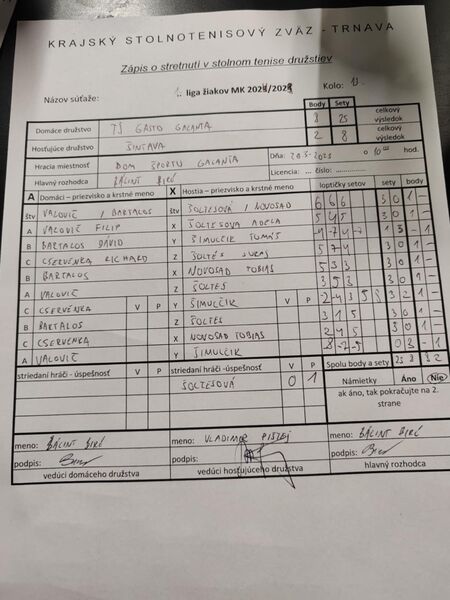 KRAJSKÝ STOLNOTENISOVÝ ZVÄZ - TRNAVA
Zápis o stretnutí v stolnom tenise družstiev
Názov súťaže: 1. liga žiakov MK Kolo: 13
Body Sety celkový výsledok
Domáce družstvo TJ GASTO GALANTA 8 25
Hosťujúce družstvo ŠINTAVA 2 8 celkový výsledok
Hracia miestnosť DOM ŠPORTU GALANTA Dňa: o 10 00 hod.
Hlavný rozhodca BÁLINT BIRÓ Licencia: ... číslo:
A Domáci – priezvisko a krstné meno X Hostia – priezvisko a krstné meno loptičky setov sety body
štv VALOVIČ / BARTALOS štv ŠOLTESOVÁ / NOVOSAD 6 6 6 3 0 1 -
A VALOVIČ FILIP X ŠOLTESOVA ADELA 5 4 5 3 0 1 -
B BARTALOS DÁVID Y ŠIMULČIK TOMÁŠ 1 3 - 1
C CSERVENKA RICHARD Z ŠOLTÉS JURAJ 5 7 4 3 0 1 -
B BARTALOS X NOVOSAD TOBIAS 5 3 3 3 0 1 -
A VALOVIČ Z ŠOLTES 3 9 3 3 0 1 -
C CSERVENKA V P Y ŠIMULČIK V P 3 2 1 -
B BARTALOS Z ŠOLTES 3 1 5 3 0 1 -
C CSERVENKA X NOVOSAD TOBIAS 2 4 5 3 0 1 -
A VALOVIČ Y ŠIMULČIK 0 3 - 1
striedaní hráči - úspešnosť V P striedaní hráči - úspešnosť V P Spolu body a sety 25 8 8 2
ŠOLTESOVÁ 0 1 Námietky Áno Nie
ak áno, tak pokračujte na 2. strane
meno: BÁLINT BIRÓ meno: VLADIMÍR meno: BÁLINT BIRÓ
podpis: podpis: podpis:
vedúci domáceho družstva vedúci hosťujúceho družstva hlavný rozhodca